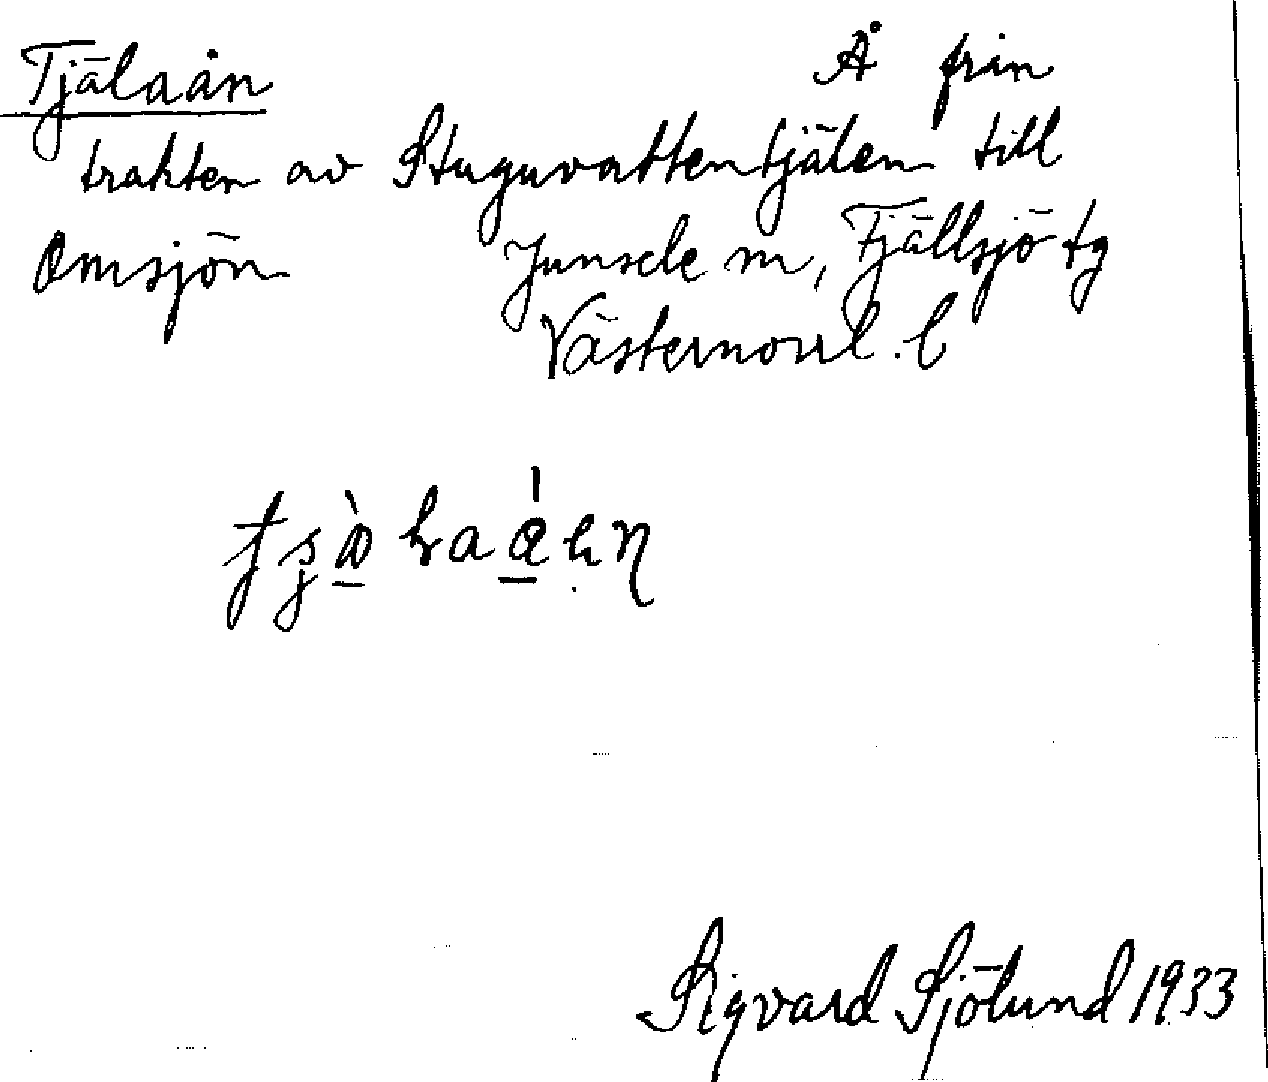 Tjälaån Å från
trakten av Stuguvattentjälen till
Omsjön Junsele m, Fjällsjö tg
Västernorrl. l
Sigvard Sjölund 1933